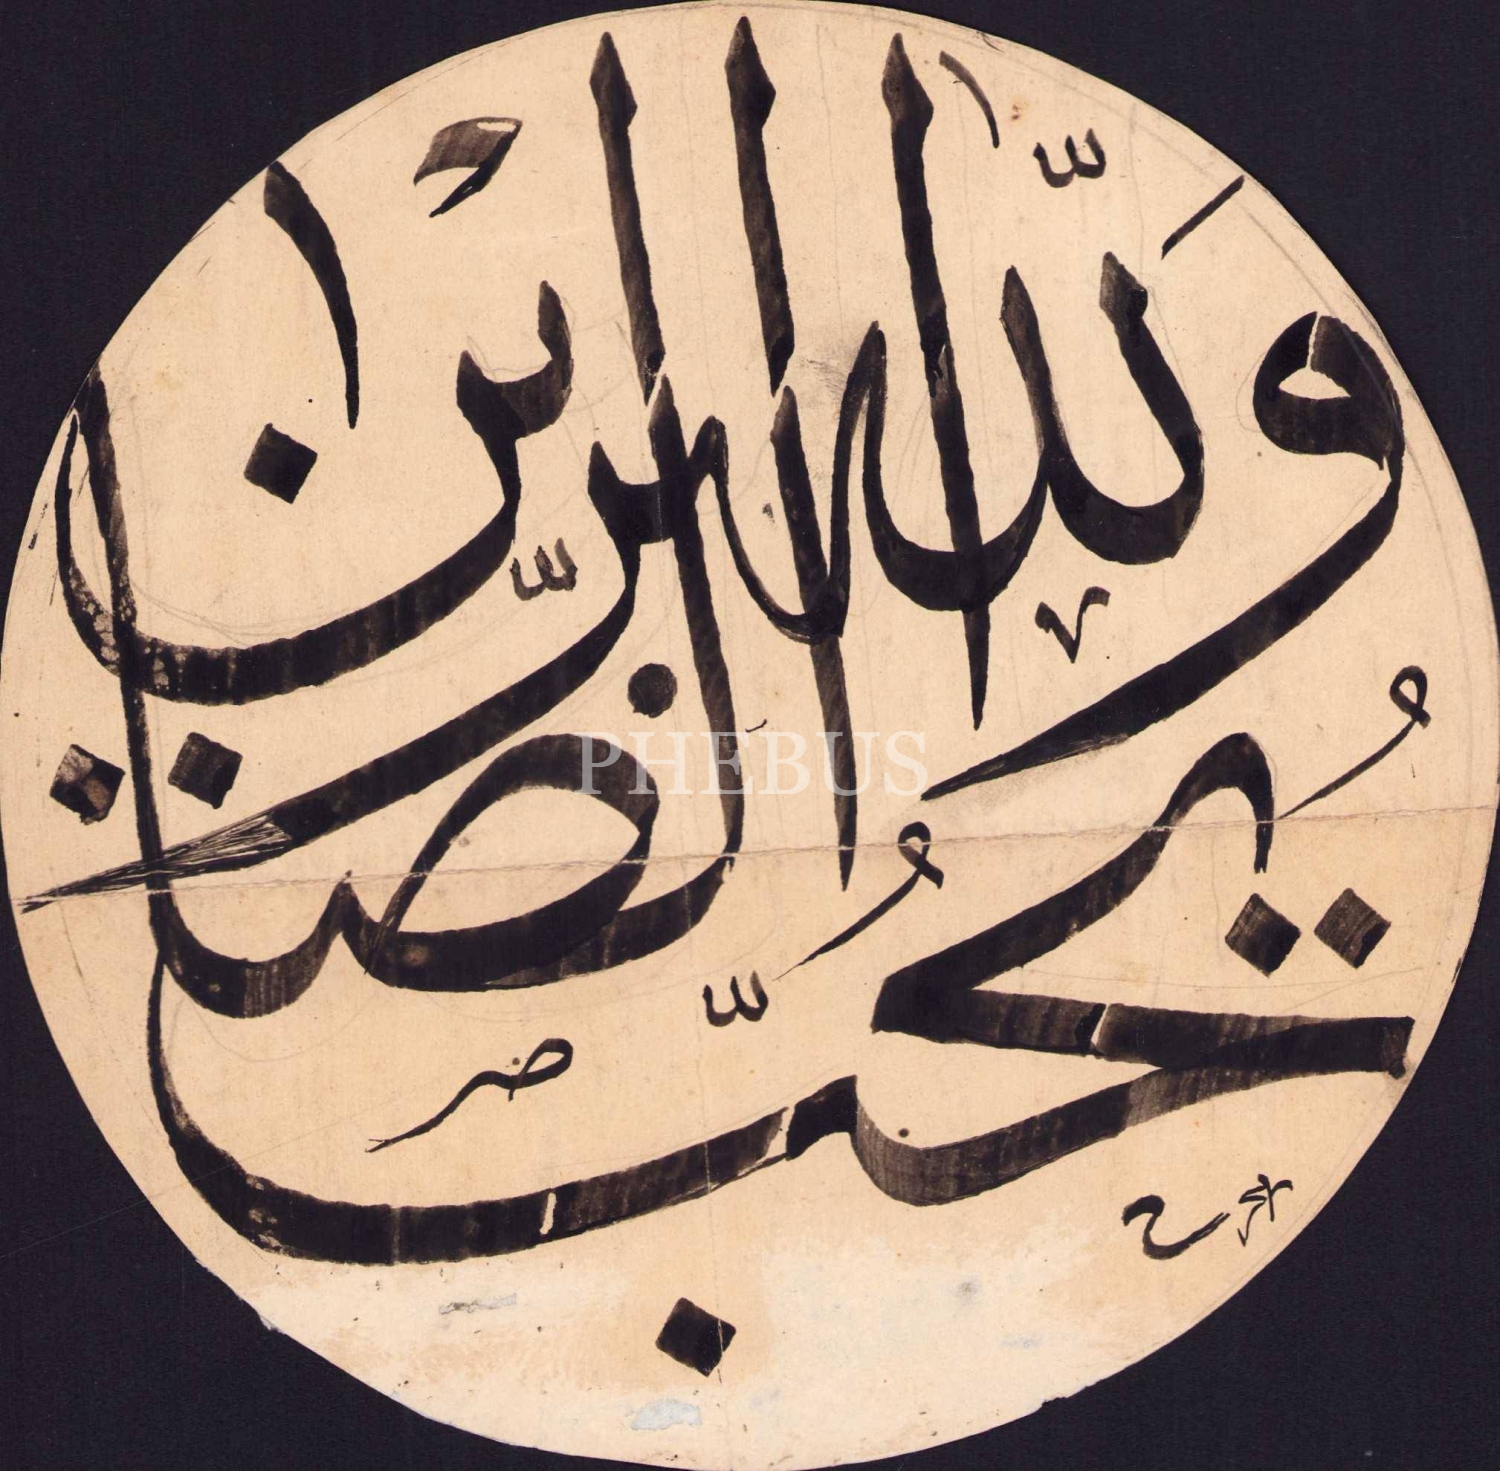 وَاللّٰهُ يُحِبُّ الصَّابِرِينَ
PHEBUS